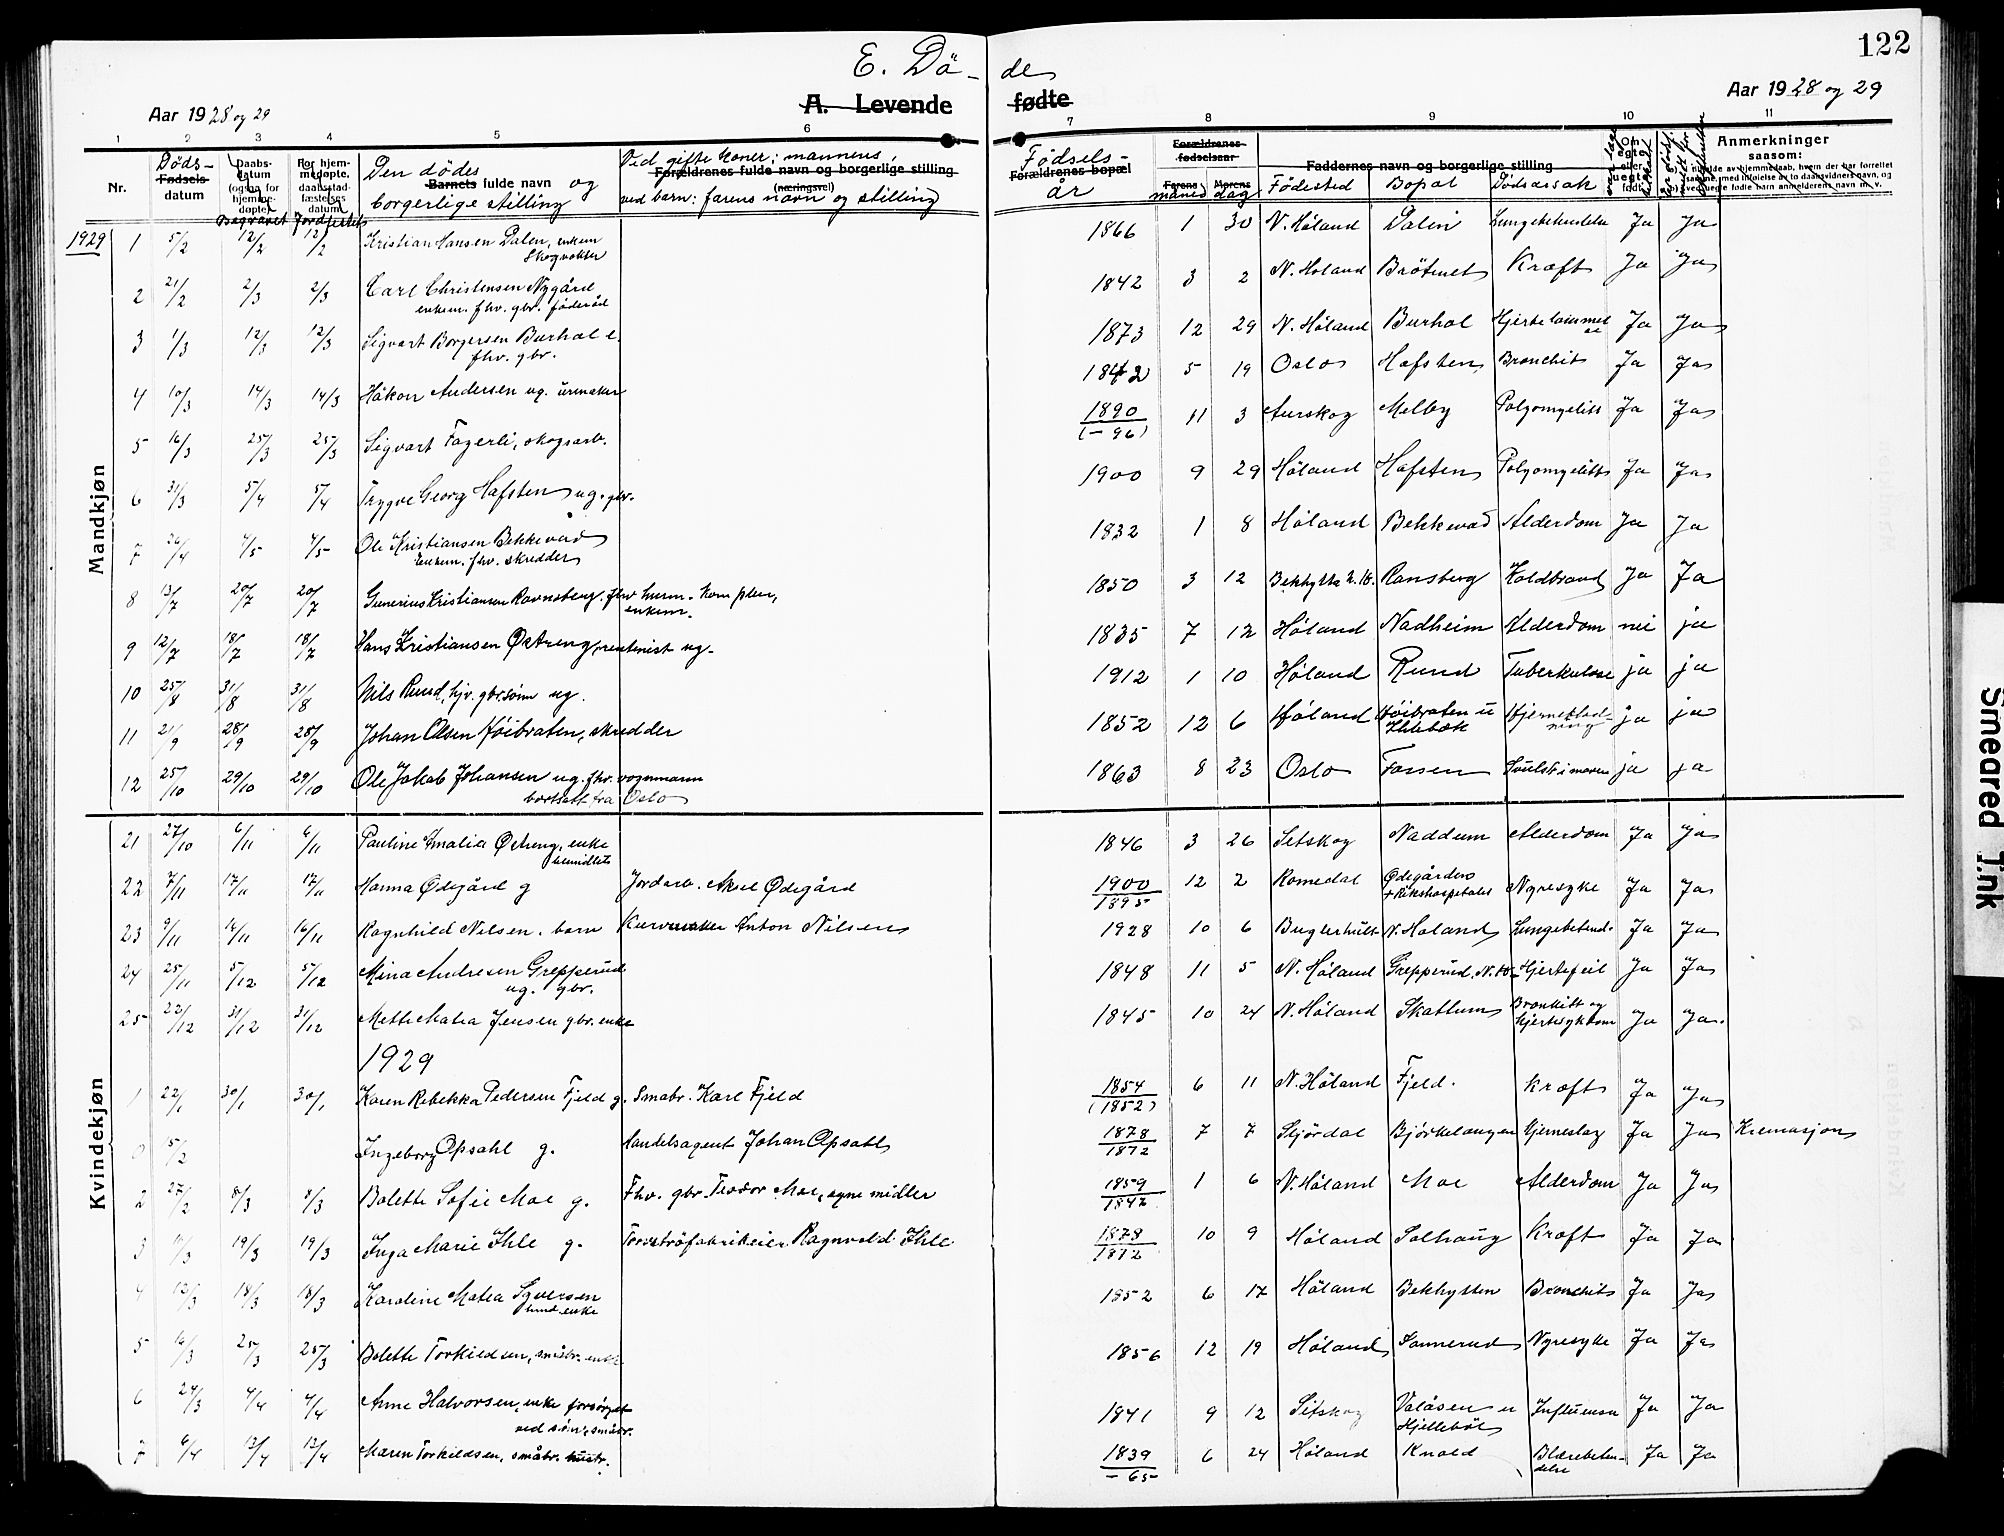 122
E. Dö-
des
Aar 1928 og 29
A. Levende
fødte
Aar 1928 og 29
1 2 3 4 5 6 7 8 9 10 11
Nr.
Døds-
Fødsels-
datum
Daabs-
datum
(ogsaa for
hjemme-
døpte).
Begravet
For hjem-
medøpte,
daabsstad-
fæstelses
datum
Jordfestet
Den dødes
Barnets fulde navn og
borgerlige stilling
Ved gifte koner: mannens,
Forældrenes fulde navn og borgerlige stilling
(næringsvei)
ved barn: farens navn og stilling
Fødsels-
Forældrenes bopæl
år
Forældrenes
fødselsaar
Farens Morens
måned dag
Faddernes navn og borgerlige stilling
Fødested Bopæl Dødsårsak
Om
egte
eller
uegte
født
Anmerkninger
saasom:
Mandkjøn
1929 1 5/2 12/2 12/2 Kristian Hansen Dalen, enkem. 1866 1 30 N. Høland Dalen Lungebetendelse Ja Ja
skogvokter
2 21/2 2/3 2/3 Carl Christensen Nygård 1842 3 2 N. Høland Bråtenet Kræft Ja Ja
enkem. fhv. gbr. föderåd
3 1/3 12/3 12/3 Sigvart Borgersen Burhol e. 1873 12 29 N. Høland Burhol Hjertelammelse Ja Ja
fhv. gbr.
4 10/3 14/3 14/3 Håkon Andersen ug. urmaker 1842 5 19 Oslo Hafsten Bronchit Ja Ja
5 16/3 25/3 25/3 Sigvart Fagerli, skogsarb. 1890 11 3 Aurskog Melby Polyomyelitt Ja Ja
(-96)
6 31/3 5/4 5/4 Trygve Georg Hafsten ug. gbr. 1900 9 29 Høland Hafsten Polyomyelitt Ja Ja
7 26/4 4/5 4/5 Ole Kristiansen Bekkevad 1832 1 8 Høland Bekkevad Alderdom Ja Ja
Enkem. fhv. skredder
8 13/7 20/7 20/7 Gunerius Kristiansen Ravnsberg. fhv. husm. kom. pleie, 1850 3 12 Ransberg Koldbrand Ja Ja
enkem.
9 12/7 18/7 18/7 Hans Kristiansen Østreng, rentenist ug. 1835 7 12 Høland Nadheim Alderdom nei ja
10 25/8 31/8 31/8 Nils Rund, hjv. gbr.sønn ug. 1912 1 10 Høland Rund Tuberkulose ja ja
11 21/9 28/9 28/9 Johan Olsen Høibraten, skredder 1852 12 6 Høland Høibraten u ja ja
12 25/10 29/10 29/10 Ole Jakob Johansen ug. fhv. vognmann 1863 8 23 Oslo Fossen Svulst i maven ja ja
bortsatt fra Oslo
Kvindekjøn
21 27/10 6/11 6/11 Pauline Amalia Østreng, enke 1846 3 26 Setskog Naddum Alderdom Ja Ja
bemidlet
22 7/11 17/11 17/11 Hanna Ødegård g Jordarb. Aksel Ødegård 1900 12 2 Romedal Ødegården Nyresyke Ja Ja
1895 + Rikshospitalet
23 9/11 16/11 16/11 Ragnhild Nilsen. barn Kurvmaker Anton Nilsen 1928 10 6 Buglerhult N. Høland Lungebetend. Ja Ja
24 25/11 5/12 5/12 Mina Andresen Grepperud 1848 11 5 N. Høland Grepperud. N. H. Hjertefeil Ja Ja
ug. gbr.
25 22/12 31/12 31/12 Mette Matea Jensen gbr. enke 1845 10 24 N. Høland Skattum Bronkitt og Ja Ja.
hjertesykdom
1929
1 22/1 30/1 30/1 Karen Rebekka Pedersen Fjeld g. Smabr. Karl Fjeld 1854 6 11 N. Høland Fjeld. Kræft Ja Ja
(1852)
0 15/2 Ingeborg Opsahl g. Handelsagent Johan Opsahl 1878 7 7 Stjördal Bjørkelangen Hjerneslag Ja Ja Kremasjon
1872
2 27/2 8/3 8/3 Bolette Sofie Moe g. Fhv. gbr. Teodor Moe, egne midler 1859 1 6 N. Høland Moe Alderdom Ja Ja
1842
3 11/3 19/3 19/3 Inga Marie Ihle g. Torvströfabrikeier Ragnvald Ihle 1878 10 9 Høland Solhaug Kræft Ja Ja
1872
4 12/3 18/3 18/3 Karoline Matea Syversen 1852 6 17 Høland Bekhytten Bronchit Ja Ja
5 16/3 25/3 25/3 Bolette Torkildsen, småbr. enke 1856 12 19 Høland Sannerud Nyresyke Ja Ja
6 24/3 4/4 4/4 Anne Halvorsen, enke forsørget 1841 9 12 Setskog Valåsen u Influensa Ja Ja
ved sønn, småbr. Hjellebøl
7 6/4 12/4 12/4 Maren Torkildsen, småbr. hustr. 1839 6 24 Høland Knold Blærebeten- Ja Ja
-65 delse
Smeared Ink